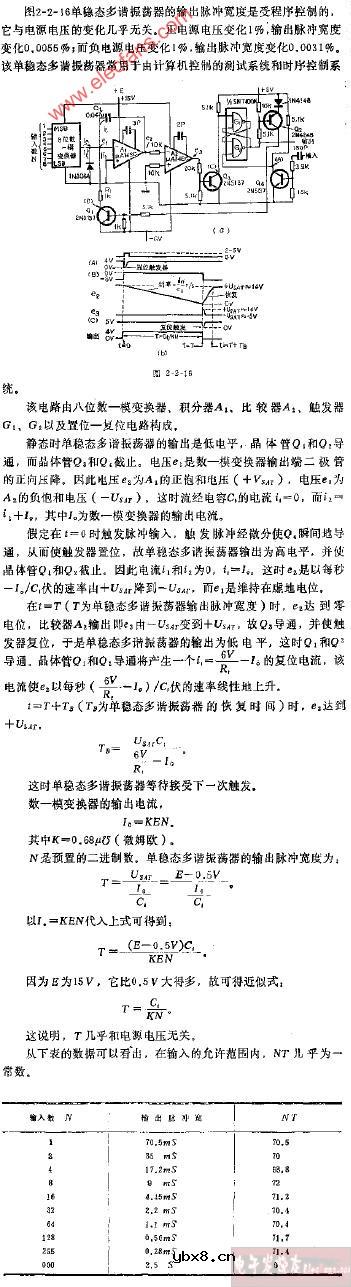 图2-2-16单稳态多谐振荡器的输出脉冲宽度是受程序控制的,
它与电源电压的变化几乎无关。正电源电压变化1%,输出脉冲宽度
变化0.0055%;而负电源电压变化1%,输出脉冲宽度变化0.0031%。
该单稳态多谐振荡器常用于由计算机控制的测试系统和时序控制系
www.elecfans.com
+E
+15V
+5V
MSB
8位数
一模
变换器
LSB
输入数N
1N4148
5.1K
10K
-6V
(a)
(A)
(B)
e₂
e₃
(C)
输出
置位触发器
恢复
复位触发
t=0
t=T
(b)
图 2-2-16
统。
该电路由八位数一模变换器、积分器A₁、比较器A₂、触发器
G₁、G₂以及置位一复位电路构成。
静态时单稳态多谐振荡器的输出是低电平,晶体管Q₁和Q₂导
通,而晶体管Q₃和Q₄截止。电压e₁是数一模变换器输出端二极管
的正向压降。因此电压e₂为A₁的正饱和电压(+V_SAT),电压e₃为
A₂的负饱和电压(-U_SAT)。这时流经电容C₁的电流i₁=0,而i₂=
i₁+I₀,其中I₀为数一模变换器的输出电流。
假定在t=0时触发脉冲输入,触发脉冲经微分使Q₄瞬间地导
通,从而使触发器置位,故单稳态多谐振荡器输出为高电平,并使
晶体管Q₁和Q₂截止。因此电流i₁和i₂为0,i₁=I₀。这时e₂是以每秒
-I₀/C₁伏的速率由+U_SAT降到-U_SAT,而e₁是维持在虚地电位。
在t=T(T为单稳态多谐振荡器输出脉冲宽度)时,e₂达到零
电位,比较器A₂输出即e₃由-U_SAT变到+U_SAT,故Q₃导通,并使触
发器复位,于是单稳态多谐振荡器的输出为低电平,这时Q₁和Q₂
导通。晶体管Q₁和Q₂导通将产生一个i₁=6V/R₁-I₀的复位电流,该
电流使e₂以每秒(6V/R₁-I₀)/C₁伏的速率线性地上升。
t=T+T_B(T_B为单稳态多谐振荡器的恢复时间)时,e₂达到
+U_SAT,
T_B=U_SAT C₁/(6V/R₁-I₀)
这时单稳态多谐振荡器等待接受下一次触发。
数一模变换器的输出电流,
I₀=KEN。
其中K=0.68μ℧(微姆欧)。
N是预置的二进制数。单稳态多谐振荡器的输出脉冲宽度为:
T=U_SAT/(I₀/C₁)=(E-0.5V)/(I₀/C₁)。
以I₀=KEN代入上式可得到:
T=(E-0.5V)C₁/KEN。
因为E为15V,它比0.5V大得多,故可得近似式:
T=C₁/KN。
这说明,T几乎和电源电压无关。
从下表的数据可以看出,在输入的允许范围内,NT几乎为一
常数。
输入数 N 输出脉冲宽 NT
1 70.5mS 70.5
2 35 mS 70
4 17.2mS 68.8
8 9 mS 72
16 4.45mS 71.2
32 2.2 mS 70.4
64 1.1 mS 70.4
128 0.56mS 71.7
255 0.28mS 71.4
000 2.5 S 0
ybx8.cn